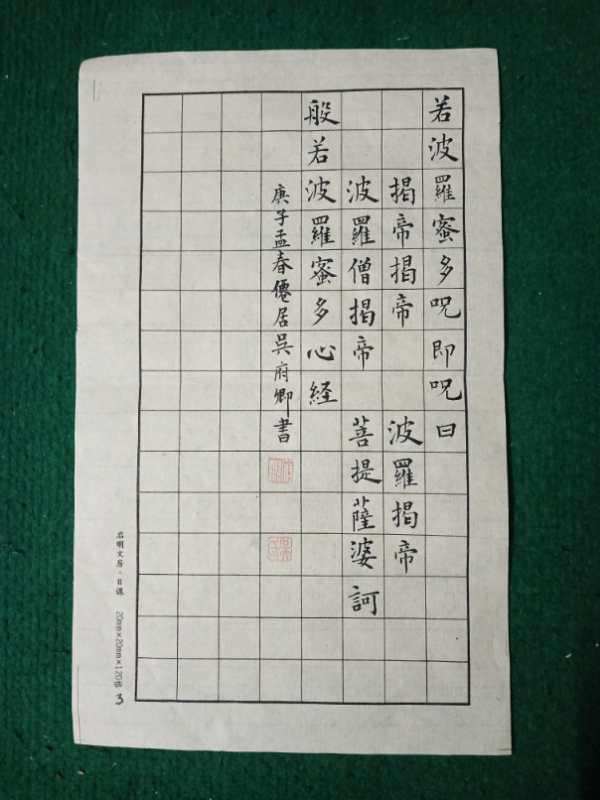 若波羅蜜多呪即呪曰
揭帝揭帝 波羅揭帝
波羅僧揭帝 菩提薩婆訶
般若波羅蜜多心経
庚子孟春僊居吳府卿書
名明文房·日課 20mm×20mm×120格 3